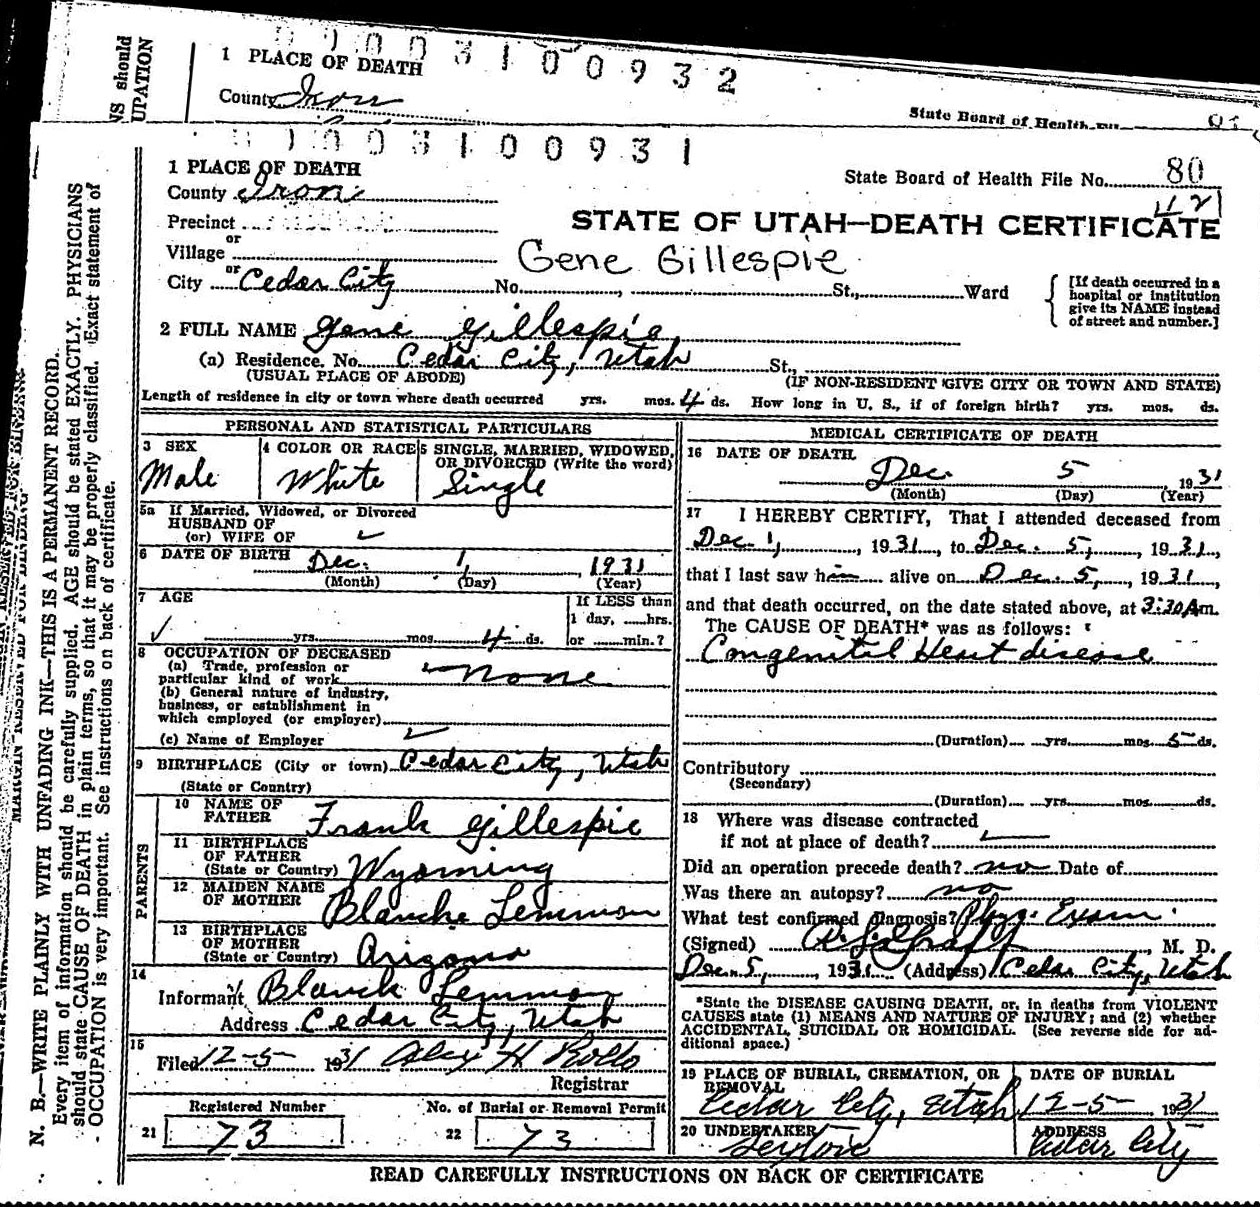 NS should
UPATION
1 PLACE OF DEATH
County Iron
0003100932
State Board of Health
0003100931
1 PLACE OF DEATH
County Iron
Precinct
or
Village
or
City Cedar City No. , St., Ward
State Board of Health File No. 80
STATE OF UTAH—DEATH CERTIFICATE
Gene Gillespie
[If death occurred in a
hospital or institution
give its NAME instead
of street and number.]
2 FULL NAME Gene Gillespie
(a) Residence. No. Cedar City, Utah St.,
(USUAL PLACE OF ABODE) (IF NON-RESIDENT GIVE CITY OR TOWN AND STATE)
Length of residence in city or town where death occurred yrs. mos. 4 ds. How long in U. S., if of foreign birth? yrs. mos. ds.
PERSONAL AND STATISTICAL PARTICULARS
3 SEX
Male
4 COLOR OR RACE
White
5 SINGLE, MARRIED, WIDOWED,
OR DIVORCED (Write the word)
Single
5a If Married, Widowed, or Divorced
HUSBAND OF
(or) WIFE OF
6 DATE OF BIRTH Dec. 1, 1931
(Month) (Day) (Year)
7 AGE
yrs. mos. 4 ds.
If LESS than
1 day, hrs.
or min.?
8 OCCUPATION OF DECEASED
(a) Trade, profession or
particular kind of work none
(b) General nature of industry,
business, or establishment in
which employed (or employer)
(c) Name of Employer
9 BIRTHPLACE (City or town) Cedar City, Utah
(State or Country)
PARENTS
10 NAME OF
FATHER Frank Gillespie
11 BIRTHPLACE
OF FATHER
(State or Country) Wyoming
12 MAIDEN NAME
OF MOTHER Blanche Lemmon
13 BIRTHPLACE
OF MOTHER
(State or Country) Arizona
14
Informant Blanch Lemmon
Address Cedar City, Utah
15
Filed 12-5- 1931 Alex H Rollo
Registrar
Registered Number
21 73
No. of Burial or Removal Permit
22 73
MEDICAL CERTIFICATE OF DEATH
16 DATE OF DEATH
Dec. 5 1931
(Month) (Day) (Year)
17 I HEREBY CERTIFY, That I attended deceased from
Dec. 1, , 1931, to Dec. 5, , 1931,
that I last saw him alive on Dec. 5, , 1931,
and that death occurred, on the date stated above, at 3:30 Am.
The CAUSE OF DEATH* was as follows:
Congenital Heart disease
(Duration) yrs. mos. 5 ds.
Contributory
(Secondary)
(Duration) yrs. mos. ds.
18 Where was disease contracted
if not at place of death?
Did an operation precede death? no Date of
Was there an autopsy? no
What test confirmed diagnosis? Phys. Exam.
(Signed) M. D.
Dec. 5, , 1931 (Address) Cedar City, Utah
*State the DISEASE CAUSING DEATH, or, in deaths from VIOLENT
CAUSES state (1) MEANS AND NATURE OF INJURY; and (2) whether
ACCIDENTAL, SUICIDAL OR HOMICIDAL. (See reverse side for ad-
ditional space.)
19 PLACE OF BURIAL, CREMATION, OR
REMOVAL
Cedar City, Utah
DATE OF BURIAL
12-5- 1931
20 UNDERTAKER
ADDRESS
Cedar City
READ CAREFULLY INSTRUCTIONS ON BACK OF CERTIFICATE
N. B.—WRITE PLAINLY WITH UNFADING INK—THIS IS A PERMANENT RECORD.
Every item of information should be carefully supplied. AGE should be stated EXACTLY. PHYSICIANS
should state CAUSE OF DEATH in plain terms, so that it may be properly classified. Exact statement of
OCCUPATION is very important. See instructions on back of certificate.